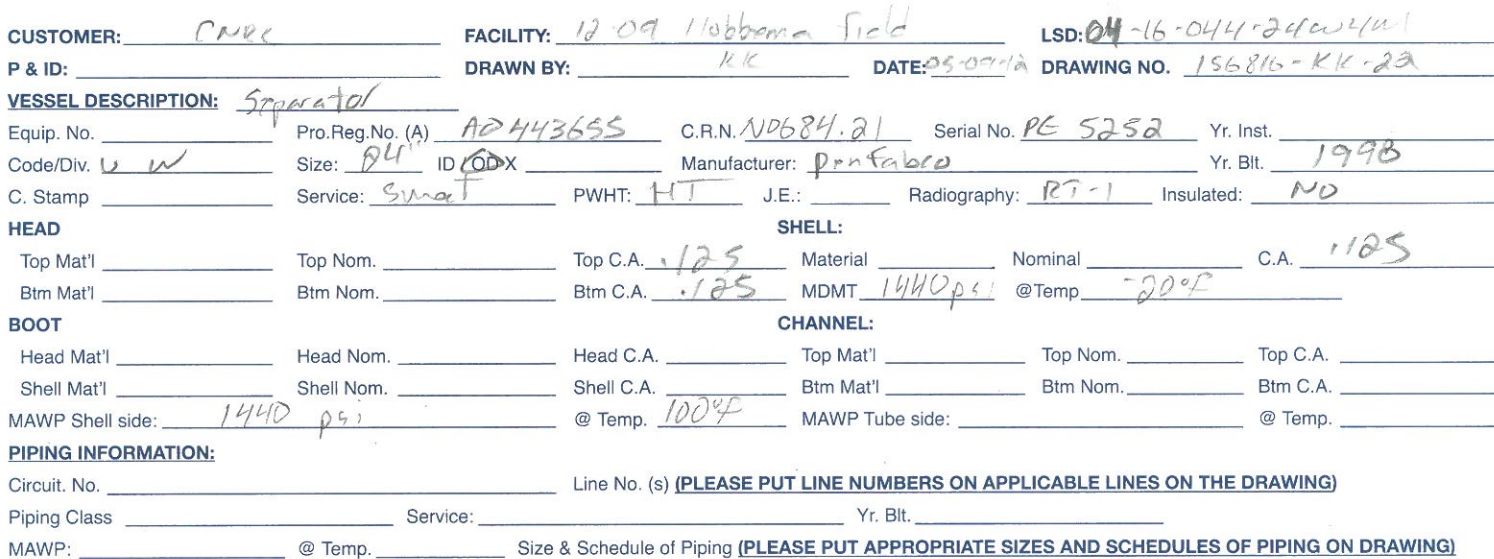 CUSTOMER: CNRL FACILITY: 12-09 Hobbema field LSD: 04-16-044-24W4W1
P & ID: DRAWN BY: KK DATE: 05-09-12 DRAWING NO. 156816-KK-22
VESSEL DESCRIPTION: Separator
Equip. No. Pro.Reg.No. (A) AO443655 C.R.N. N0684.21 Serial No. PE 5252 Yr. Inst.
Code/Div. U W Size: 24" ID / OD X Manufacturer: Penfabco Yr. Blt. 1998
C. Stamp Service: Sweet PWHT: HT J.E.: Radiography: RT-1 Insulated: NO
HEAD SHELL:
Top Mat'l Top Nom. Top C.A. .125 Material Nominal C.A. .125
Btm Mat'l Btm Nom. Btm C.A. .125 MDMT 1440psi @Temp -20°F
BOOT CHANNEL:
Head Mat'l Head Nom. Head C.A. Top Mat'l Top Nom. Top C.A.
Shell Mat'l Shell Nom. Shell C.A. Btm Mat'l Btm Nom. Btm C.A.
MAWP Shell side: 1440 psi @ Temp. 100°F MAWP Tube side: @ Temp.
PIPING INFORMATION:
Circuit. No. Line No. (s) (PLEASE PUT LINE NUMBERS ON APPLICABLE LINES ON THE DRAWING)
Piping Class Service: Yr. Blt.
MAWP: @ Temp. Size & Schedule of Piping (PLEASE PUT APPROPRIATE SIZES AND SCHEDULES OF PIPING ON DRAWING)